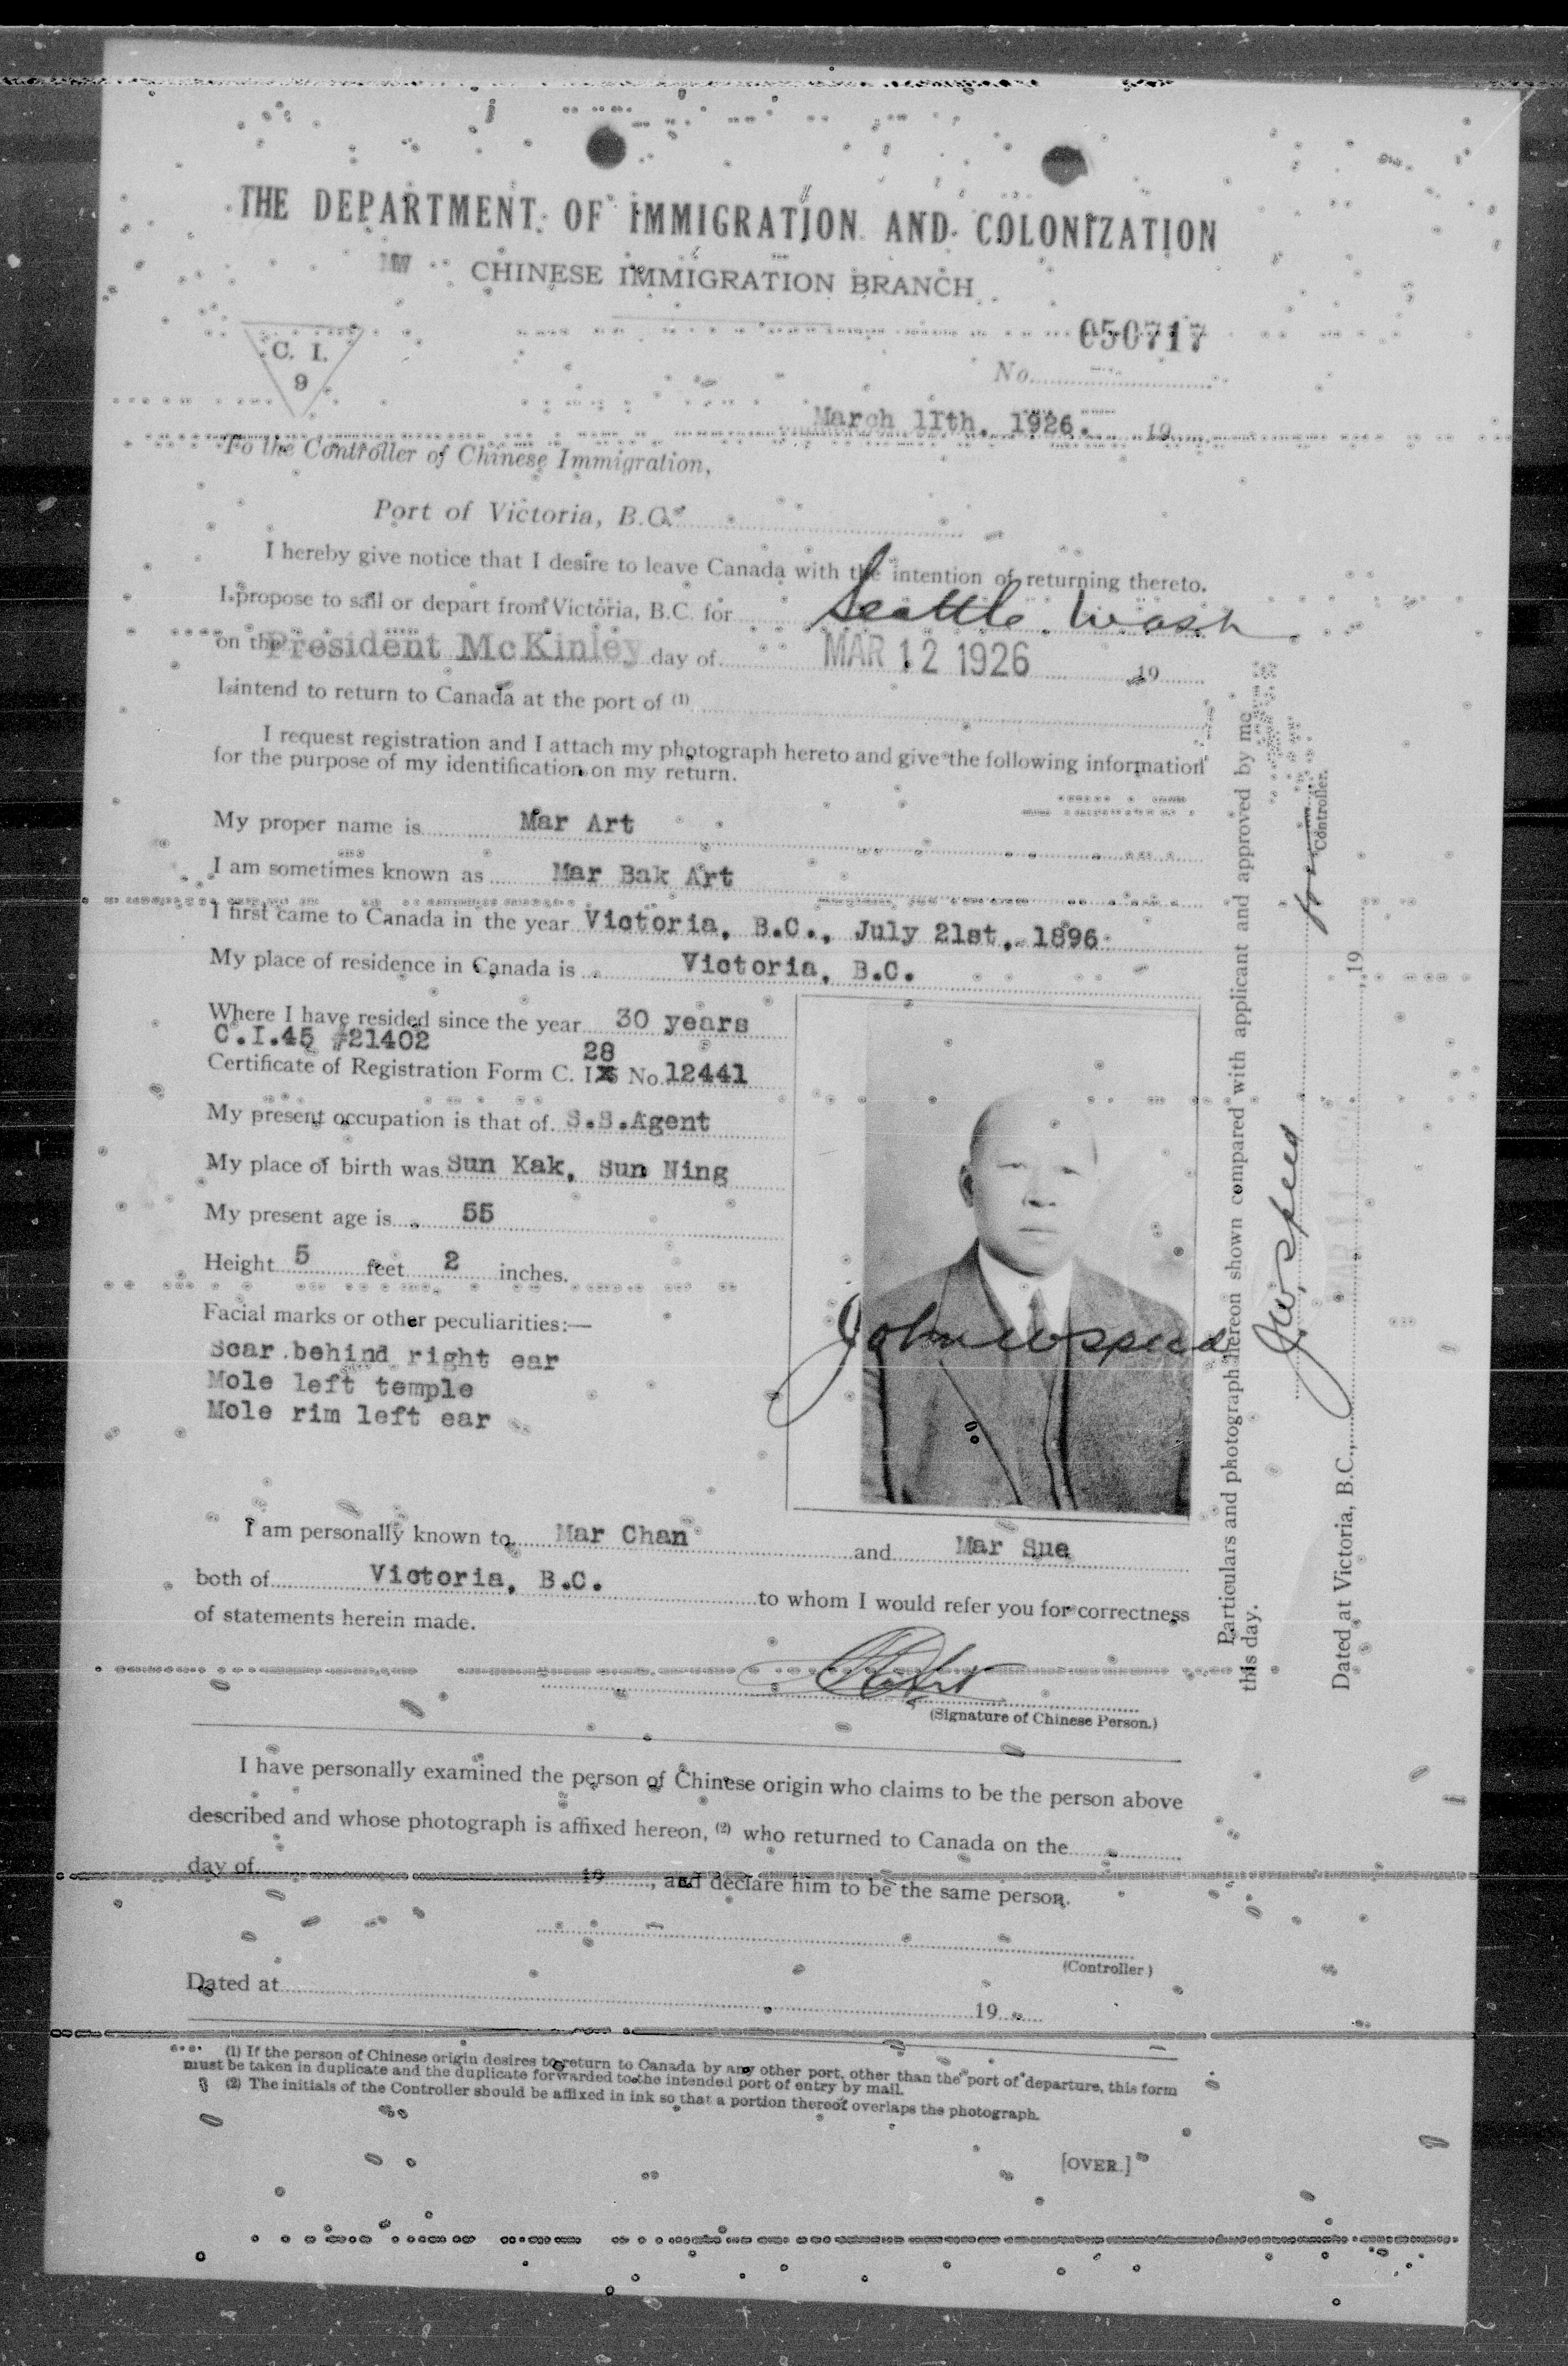 THE DEPARTMENT OF IMMIGRATION AND COLONIZATION
CHINESE IMMIGRATION BRANCH
C. I.
9
050717
No.
March 11th, 1926. 19
To the Controller of Chinese Immigration,
Port of Victoria, B.C.
I hereby give notice that I desire to leave Canada with the intention of returning thereto.
I propose to sail or depart from Victoria, B.C. for Seattle Wash
on the President McKinley day of MAR 12 1926 19
I intend to return to Canada at the port of (1)
I request registration and I attach my photograph hereto and give the following information
for the purpose of my identification on my return.
My proper name is Mar Art
I am sometimes known as Mar Bak Art
I first came to Canada in the year Victoria, B.C., July 21st, 1896
My place of residence in Canada is Victoria, B.C.
Where I have resided since the year 30 years
C.I.45 #21402
28
Certificate of Registration Form C. I. No. 12441
My present occupation is that of S.S.Agent
My place of birth was Sun Kak, Sun Ning
My present age is 55
Height 5 feet 2 inches.
Facial marks or other peculiarities:—
Scar behind right ear
Mole left temple
Mole rim left ear
John W Speed
I am personally known to Mar Chan and Mar Sue
both of Victoria, B.C. to whom I would refer you for correctness
of statements herein made.
(Signature of Chinese Person.)
I have personally examined the person of Chinese origin who claims to be the person above
described and whose photograph is affixed hereon, (2) who returned to Canada on the
day of 19 , and declare him to be the same person.
(Controller)
Dated at 19
(1) If the person of Chinese origin desires to return to Canada by any other port, other than the port of departure, this form
must be taken in duplicate and the duplicate forwarded to the intended port of entry by mail.
(2) The initials of the Controller should be affixed in ink so that a portion thereof overlaps the photograph.
[OVER.]
Particulars and photograph hereon shown compared with applicant and approved by me
this day.
J.W. Speed
Controller.
Dated at Victoria, B.C., 19